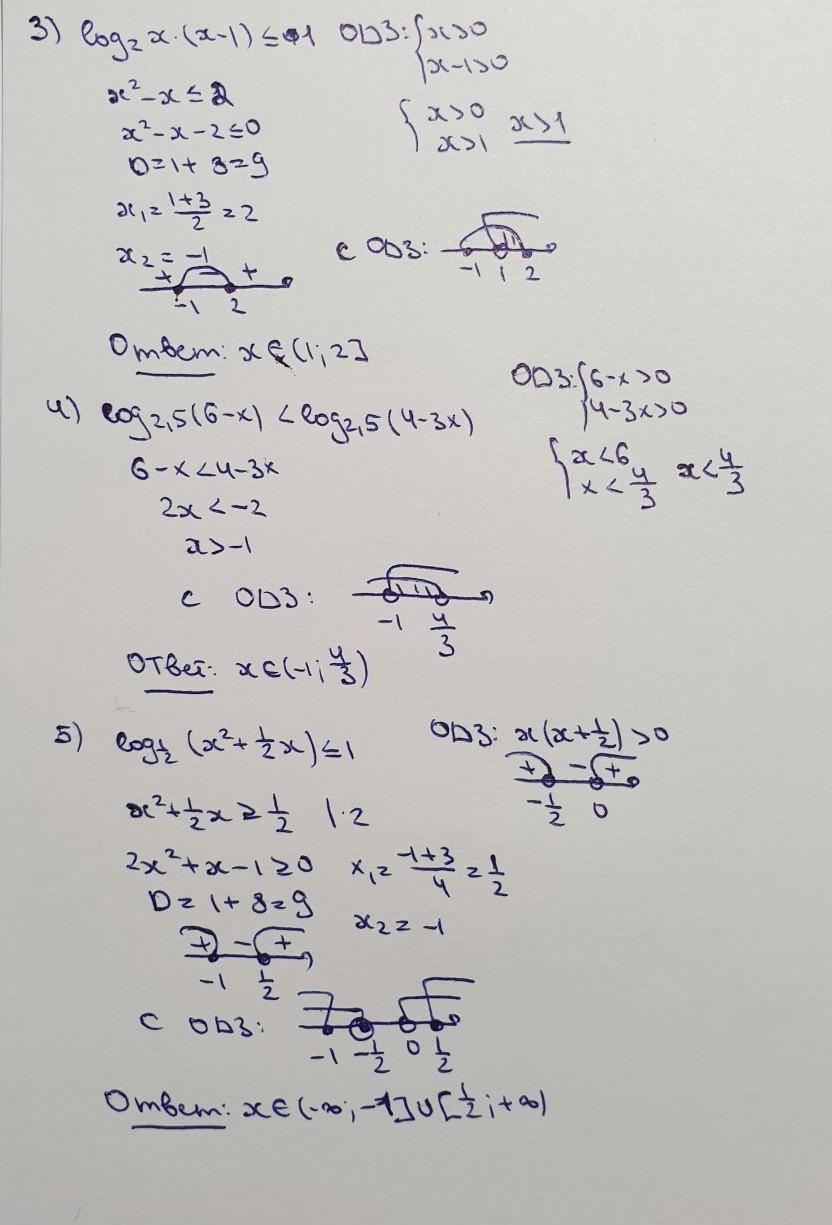 3) log₂ x·(x-1) ≤ 1 ОДЗ: {x>0
x-1>0
x²-x ≤ 2
{x>0
x>1 x>1
x²-x-2≤0
D=1+8=9
x₁=(1+3)/2=2
x₂=-1
+ - +
-1 2
С ОДЗ:
-1 1 2
Ответ: x∈(1;2]
ОДЗ: {6-x>0
4-3x>0
4) log₂,₅(6-x) < log₂,₅(4-3x)
{x<6
x<4/3 x<4/3
6-x<4-3x
2x<-2
x>-1
С ОДЗ:
-1 4/3
Ответ: x∈(-1; 4/3)
5) log½ (x²+½x)≤1 ОДЗ: x(x+½)>0
+ - +
-½ 0
x²+½x≥½ |·2
2x²+x-1≥0 x₁=(-1+3)/4=½
D=1+8=9
x₂=-1
+ - +
-1 ½
С ОДЗ:
-1 -½ 0 ½
Ответ: x∈(-∞;-1]∪[½;+∞)